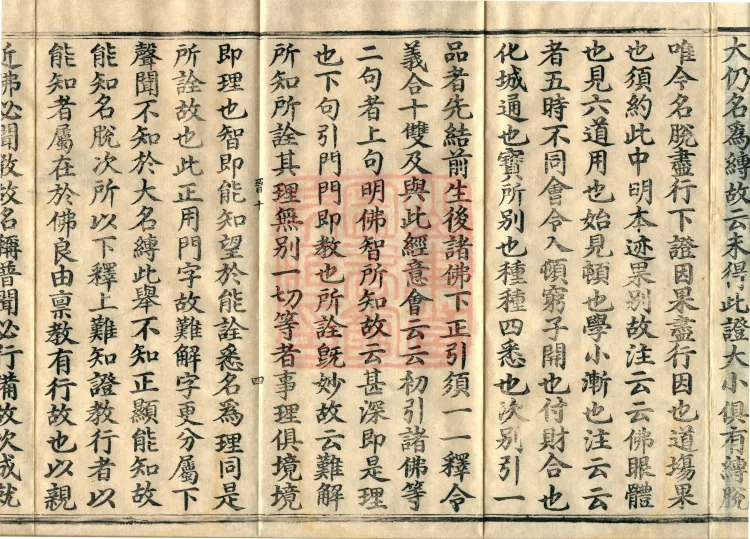 大仍名為縛故云未得此證大小俱有縛脫
唯今名脫盡行下證因果盡行因也道場果
也須約此中明本迹果別故注云云佛眼體
也見六道用也始見頓也學小漸也注云云
者五時不同會令入頓窮子開也付財合也
化城通也寶所別也種種四悉也次別引一
品者先結前生後諸佛下正引須一一釋令
義合十雙及與此經意會云云初引諸佛等
二句者上句明佛智所知故云甚深即是理
也下句引門門即教也所詮既妙故云難解
所知所詮其理無別一切等者事理俱境境
晉十
四
即理也智即能知望於能詮悉名為理同是
所詮故也此正用門字故難解字更分屬下
聲聞不知於大名縛此舉不知正顯能知故
能知名脫次所以下釋上難知證教行者以
能知者屬在於佛良由稟教有行故也以親
近佛必聞教故名稱普聞必行備故次成就